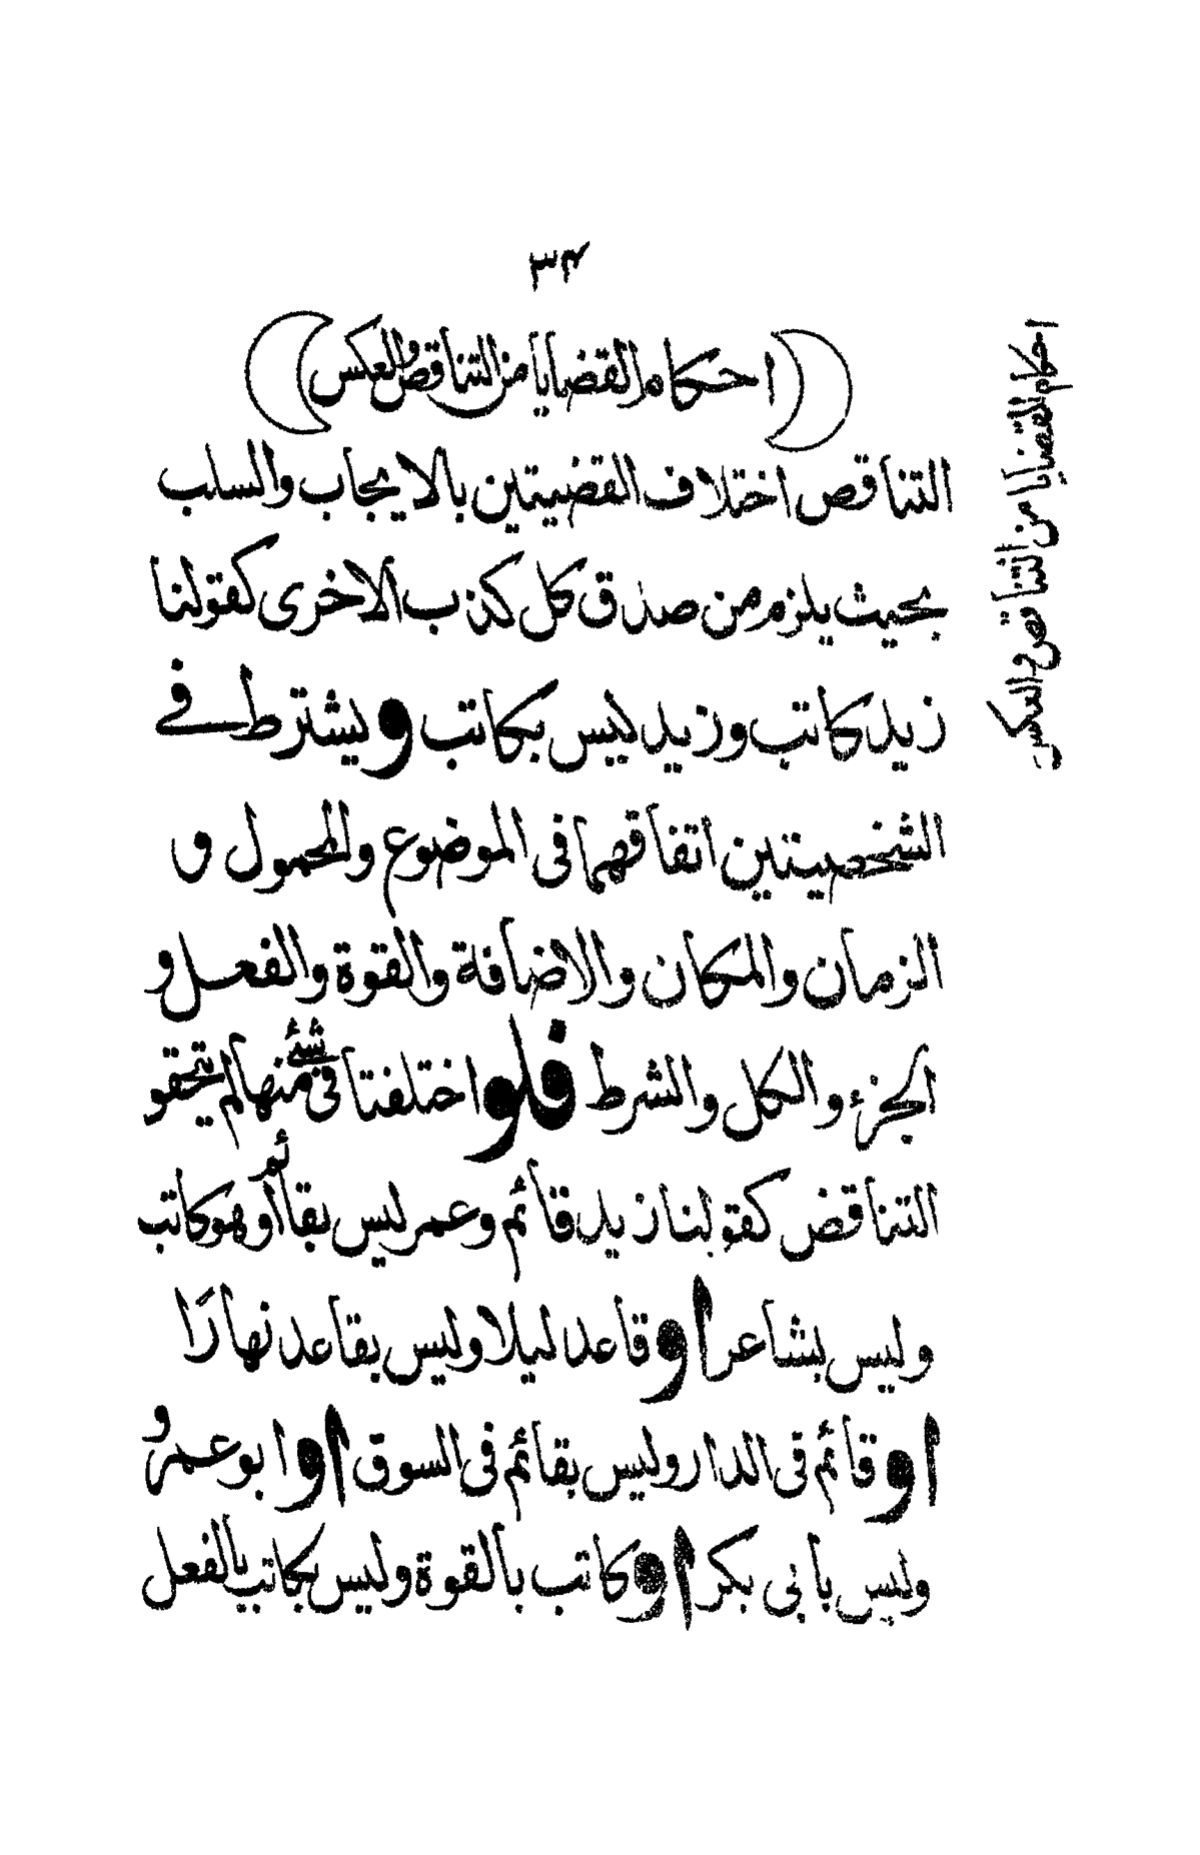 ٣٤
احكام القضايا من التناقض والعكس
احكام القضايا من التناقض والعكس
التناقض اختلاف القضيتين بالايجاب والسلب
بحيث يلزم من صدق كل كذب الاخرى كقولنا
زيد كاتب وزيد ليس بكاتب ويشترط فے
الشخصيتين اتفاقهما فى الموضوع والمحمول و
الزمان والمكان والاضافة والقوة والفعل و
الجزء والكل والشرط فلو اختلفتا فى شئ منها لم يتحقق
التناقض كقولنا زيد قائم وعمر ليس بقائم او هو كاتب
وليس بشاعر او قاعد ليلا وليس بقاعد نهارًا
او قائم فى الدار وليس بقائم فى السوق او ابو عمرو
وليس بابى بكر او كاتب بالقوة وليس بكاتب بالفعل